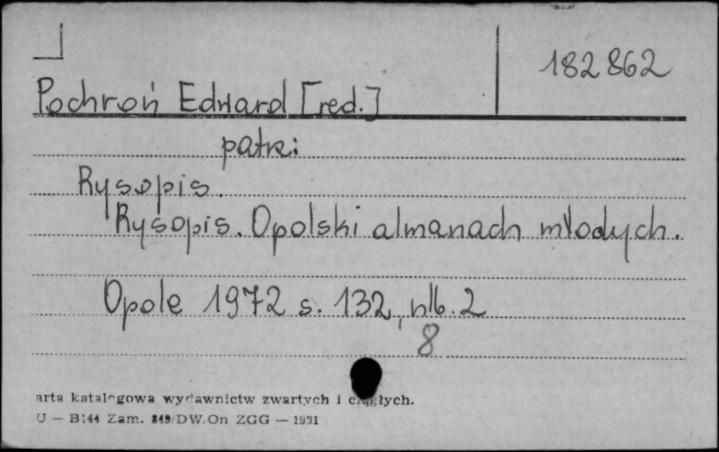 182862
Pochroń Edward [red.]
patrz:
Rysopis.
Rysopis. Opolski almanach młodych.
Opole 1972 s. 132, nlb. 2
8
arta katalogowa wydawnictw zwartych i ciągłych.
U — B144 Zam. 849/DW/On ZGG — 1931